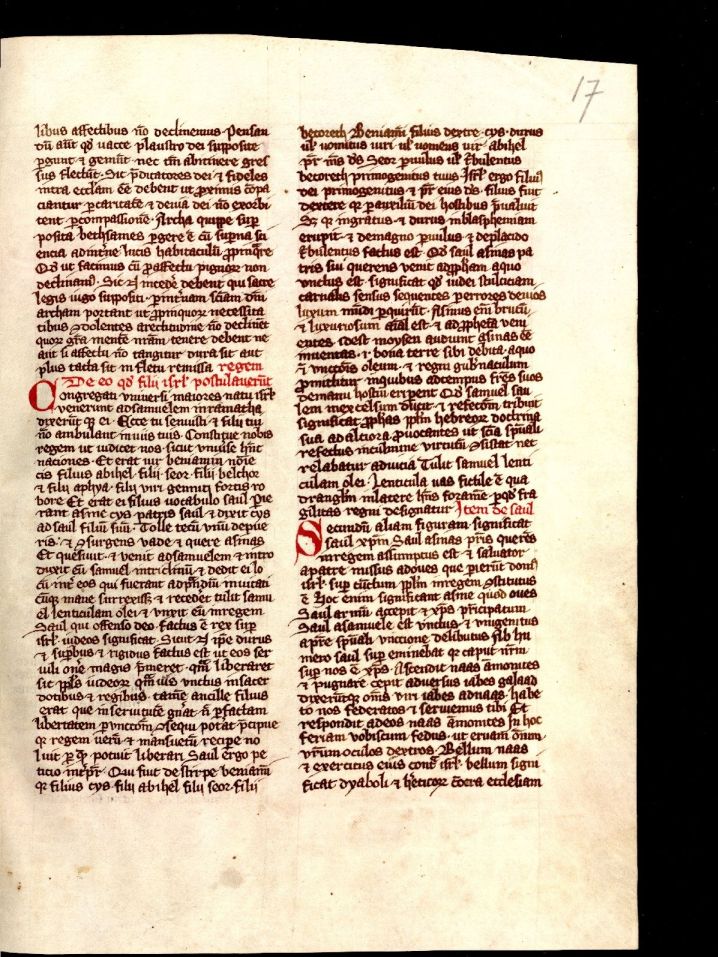 17
libus affectibus no declinemus. Pensan
du aut qd vacce plaustro dei supposite
pgunt & gemunt. nec tn abintnere gres
sus flectunt. Sic pdicatores dei & fideles
intra ecclam ee debent ut pximis copa
ciantur p caritate & de via dei no exorbi
tent p compassione. Archa quippe sup
posita bethsames pgere e cu supna sci
encia ad intne lucis habitaculu ppinqre
legis iugo suppositi. p intnam sciam dni
archam portant ut ppinquor necessita
tibus dolentes a rectitudine no declinet
plus tacta sit in fletu remissa regem
De eo qd filii isrl postulaverut
Congregati universi maiores natu isrl
venerunt ad samuelem in ramatha
dixerut q ei. Ecce tu senuisti & filii tui
no ambulant in viis tuis. Constitue nobis
regem ut iudicet nos. sicut universe hnt
naciones. Et erat vir beniamin noie
cis filius abihel. filii. seor. filii bechor
& filii aphya. filii viri gemini fortis ro
bore Et erat ei filius vocabulo saul Pie
rant asine cys patris saul & dixit cys
ad saul filiu suu. Tolle tecu unu de pue
ris. & surgens vade & quere asinas
Et quesivit. & venit ad samuelem & intro
duxit eu samuel in tricliniu & dedit ei lo
cu int eos qui fuerant ad prandiu invitati
Cuq mane surrexiss & recedet tulit samu
el lenticulam olei & unxit eu in regem
Saul qui offenso deo. factus e rex sup
isrl. iudeos significat. Sicut ipe durus
& supbus & rigidus factus est ut eos ser
vili one magis pmeret. qm liberaret
sic ppls iudeor qm usus unctus in sacer
dotibus & regibus. tame ancille filius
erat que in servitute gnat. n pfactam
libertatem p unctom. sequi potat pcipue
q regem veru & mansuetu recipe no
luit p q potuit liberari. Saul ergo pe
ticio intpr. Qui fuit de stirpe beniami
q filius cys. filii abihel filii seor. filii
becoreth Beniami filius dextre. cys. durus
ul vomitus viri ul vomens vir. abihel
pr ms ds Seor pvulus ul tbulentus
becoreth primogenitus tuus. Isrl ergo filiu
dei primogenitus & pr eius ds. filius fuit
dextere q p auxiliu dei hostibus pvaluit
S q ingratus. & durus in blasphemiam
erupit. & de magno pvulus & de placido
tbulentus factus est. Qd saul asinas pa
tris sui querens venit ad ppham a quo
unctus est. significat qd iudei stulticiam
carnalis sensus sequentes p errores devios
luxum mudi pquirut. Asinus eni brutu
& luxuriosum aial est. & ad ppheta veni
entes. idest moysen audiunt asinas ee
inventas. & bona terre sibi debita. a quo
& unctois oleum. & regni gubnaculum
pmittitur in quibus ad tempus fres suos
de manu hostiu eripent Qd samuel sau
lem in excelsum ducit. & refectom tribuit
significat pphas pplm hebreor doctrina
sua ad alciora pvocantes ut scia spuali
refectus in cubmine virtutu sistat net
relabatur ad vicia Tulit samuel lenti
culam olei. Lenticula vas fictile e qua
drangulu in latere hns forame p qd fra
gilitas regni designatur Item de saul
Secundu aliam figuram significat
saul xpm Saul asinas pris queres
in regem assumptus est. & salvator
a patre missus ad oves que pierut dom
isrl. sup cunctum pplm in regem stitutus
e Hoc enim significant asine quod oves
Saul armu accepit. & xps pricipatum
Saul a samuele est unctus. & unigenitus
a pre spuali unctione delibutus Sib hu
mero saul sup eminebat. q caput nrm
sup nos e xps. Ascendit naas amonites
& pugnare cepit adversus iabes galaad
dixerutq oms viri iabes ad naas. habe
to nos federatos & serviemus tibi Et
respondit ad eos naas amonites In hoc
feriam vobiscum fedus. ut eruam omnium
vrum oculos dextros. Bellum naas
& exercitus eius cont isrl. bellum signi
ficat dyaboli & heticor cotra ecclesiam